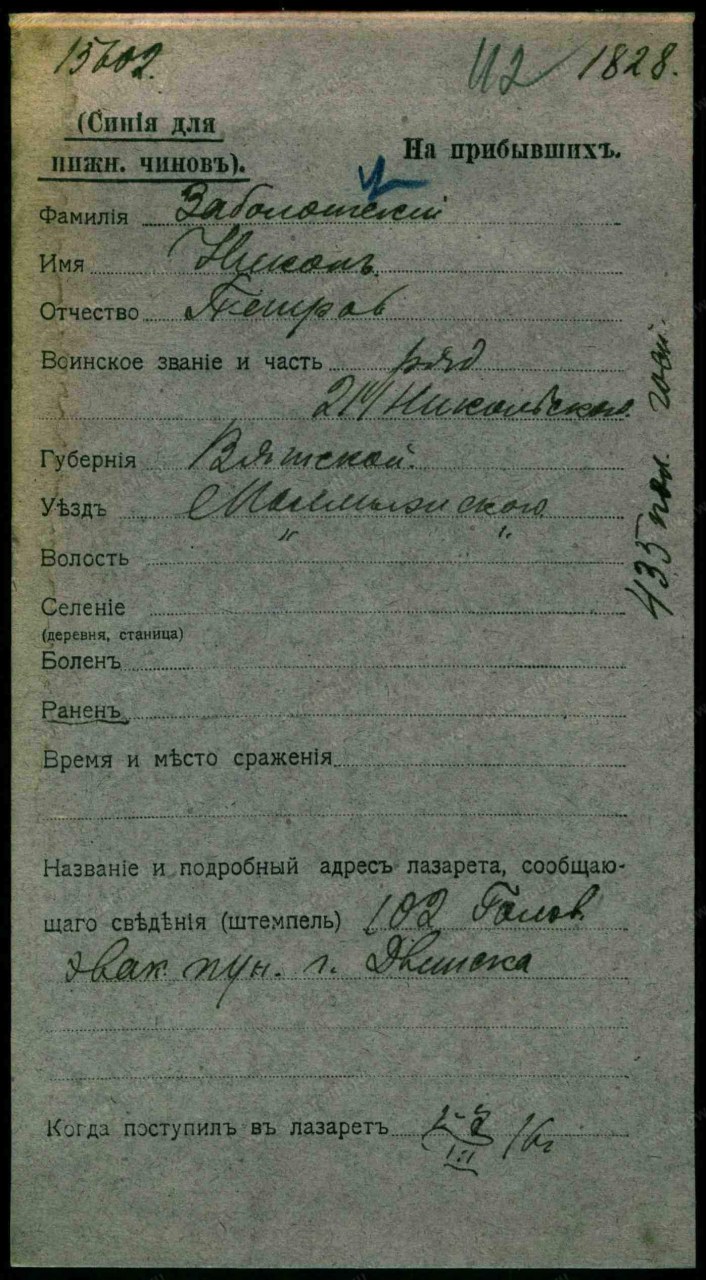 15602. 1828.
(Синія для
нижн. чиновъ).
На прибывшихъ.
Фамилія Заболотскій
Имя Никонъ
Отчество Петров
Воинское званіе и часть ряд
214 Никольского
Губернія Вятской.
Уѣздъ Малмыжского
Волость " "
Селеніе
(деревня, станица)
Боленъ
Раненъ
Время и мѣсто сраженія
Названіе и подробный адресъ лазарета, сообщаю-
щаго свѣдѣнія (штемпель) 102 Голов
эвак пун. г. Двинска
Когда поступилъ въ лазаретъ III 16г
435 пол. госп.